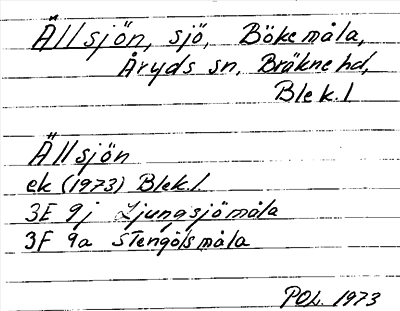 Ällsjön, sjö, Bökemåla,
Åryds sn, Bräkne hd,
Blek. l
Ällsjön
ek (1973) Blek. l.
3E 9j Ljungsjömåla
3F 9a Stengölsmåla
POL. 1973